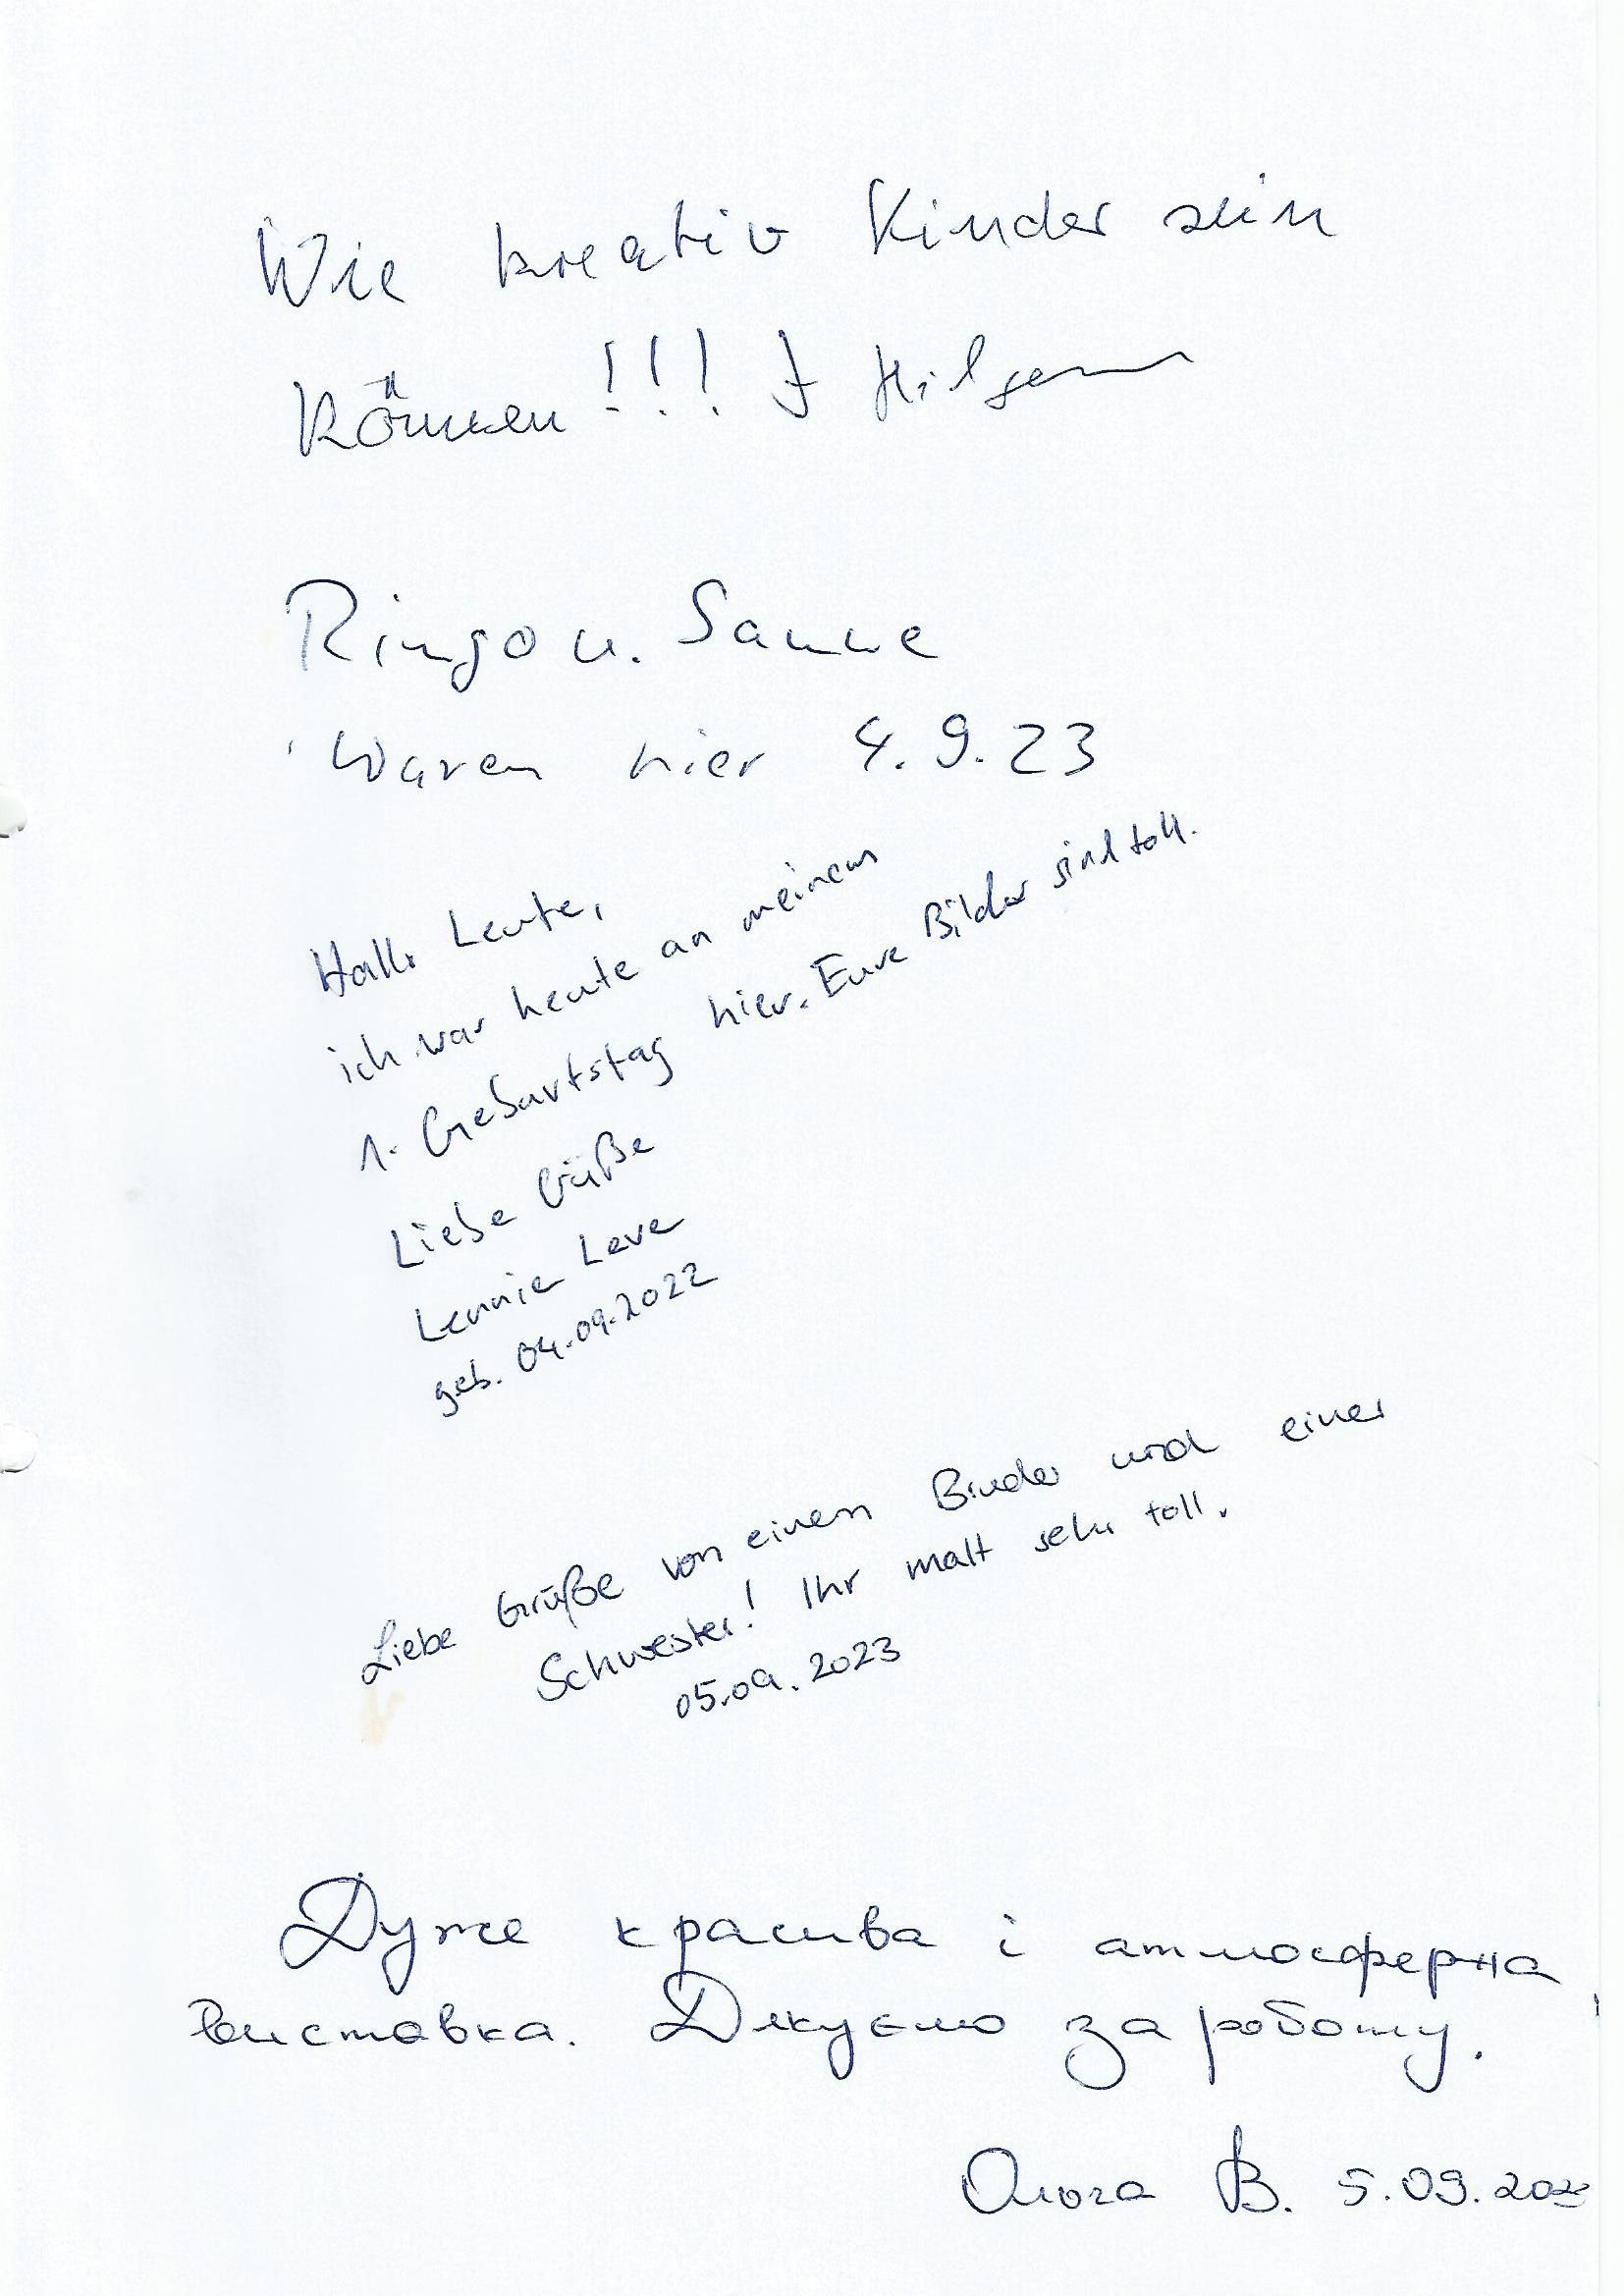 Wie kreativ Kinder sein
können!!! J Hilgem
Ringo u. Sanne
waren hier 4.9.23
Hallo Leute,
ich war heute an meinem
1. Geburtstag hier. Eure Bilder sind toll.
Liebe Grüße
Lennie Leve
geb. 04.09.2022
Liebe Grüße von einem Bruder und einer
Schwester! Ihr malt sehr toll.
05.09.2023
Дуже красива і атмосферна
виставка. Дякуємо за роботу.
Ольга В. 5.09.202